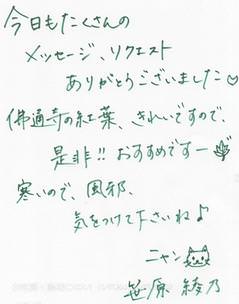 今日もたくさんの
メッセージ、リクエスト
ありがとうございました♡
佛通寺の紅葉、きれいですので、
是非!! おすすめですー
寒いので、風邪、
気をつけて下さいね♪
ニャン
笹原 綾乃